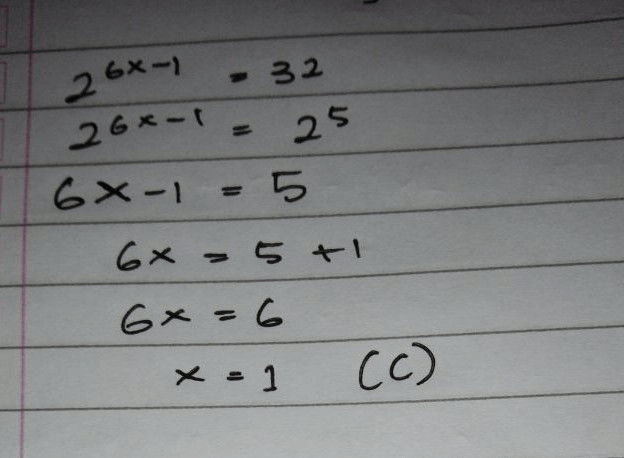 2^{6x-1} = 32
2^{6x-1} = 2^5
6x-1 = 5
6x = 5 +1
6x = 6
x = 1 (C)